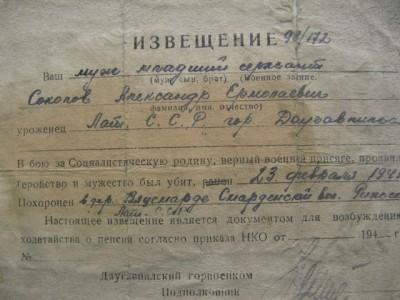 ИЗВЕЩЕНИЕ 90/172
Ваш муж младший сержант
(муж, сын, брат) (военное звание.
Соколов Александр Ермолаевич
фамилия, имя, отчество)
уроженец Лат. С.С.Р. гор. Даугавпилс
В бою за Социалистическую родину, верный военной присяге, проявив
геройство и мужество был убит, ранен 23 февраля 194
Похоронен в дер. Смарденской вол.
Лат. ССР
Настоящее извещение является документом для возбуждения
ходатайства о пенсии согласно приказа НКО от 194 г
№
Даугавпилский горвоенком
Подполковник